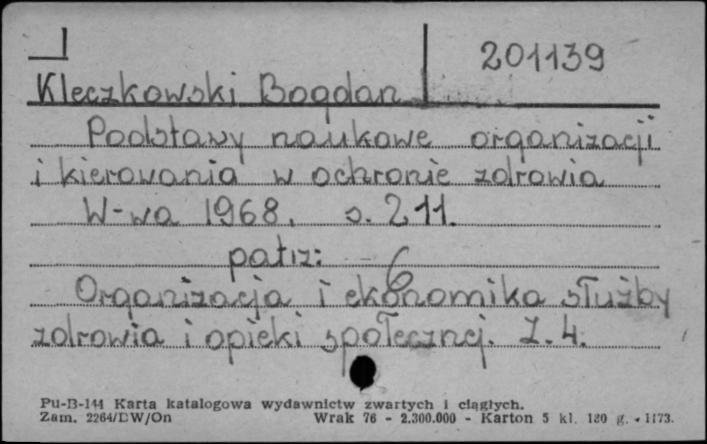 201139
Kleczkowski Bogdan
Podstawy naukowe organizacji
i kierowania w ochronie zdrowia
W-wa 1968. s. 211.
patrz:
Organizacja i ekonomika służby
zdrowia i opieki społecznej. Z. 4.
Pu-B-144 Karta katalogowa wydawnictw zwartych i ciągłych.
Zam. 2264/DW/On Wrak 76 - 2.300.000 - Karton 5 kl. 180 g. - 1173.